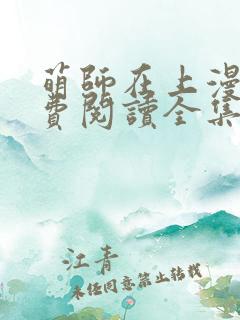 萌師在上漫
費閱讀全集
江青
未经同意禁止转载